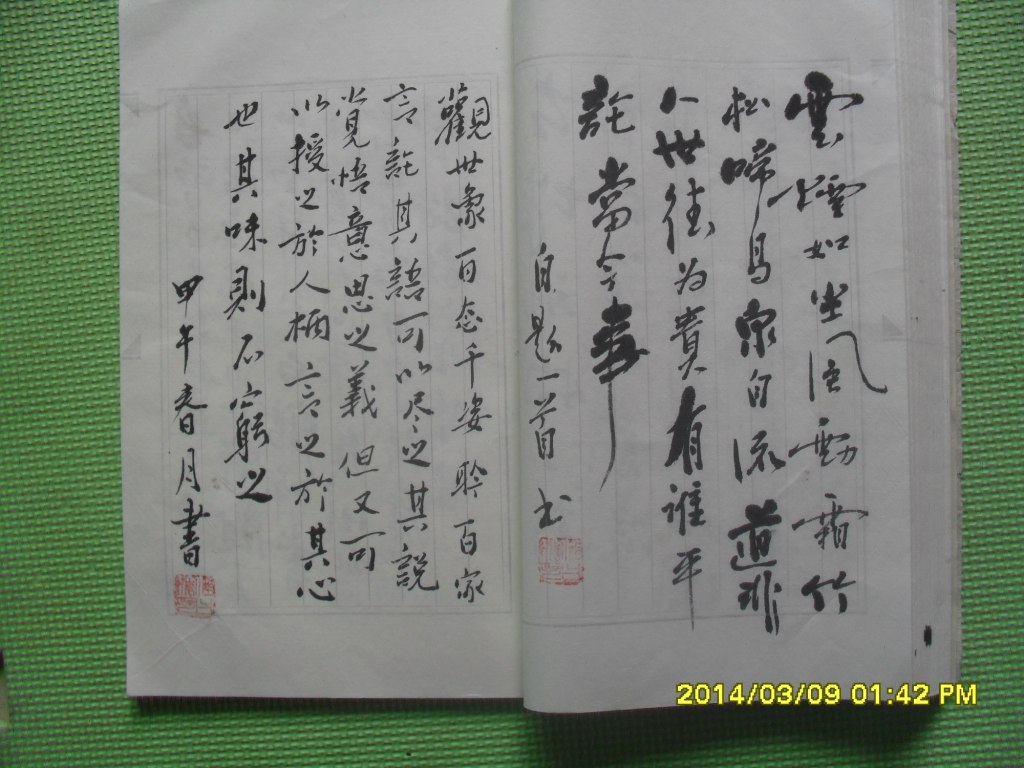 雲煙如坐風
勁霜竹
松啼鳥泉自流道非
人世往為貴有誰平
託當今事
自題一首 书
觀世象百态千姿聆百家
言託其語可以尽之其說
覺悟意思之義但又可
以授之於人柄言之於其心
也其味則不窮之
甲午春月書
2014/03/09 01:42 PM